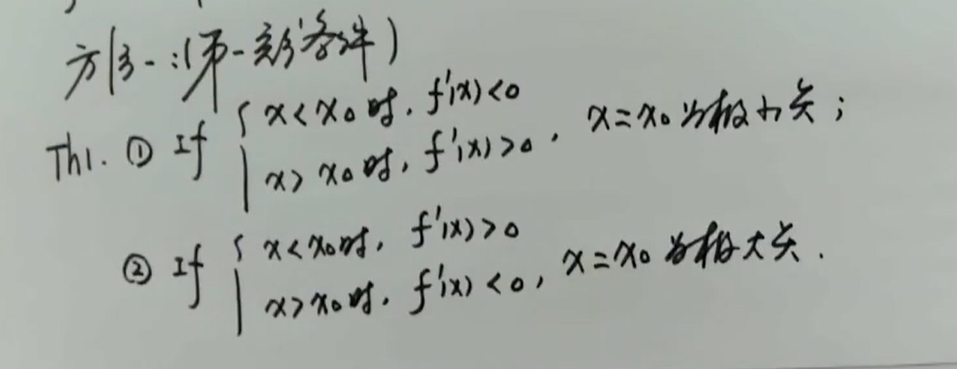 方法一:(第一充分条件)
Th1. ① If { x<x₀时, f'(x)<0
x>x₀时, f'(x)>0, x=x₀为极小点;
② If { x<x₀时, f'(x)>0
x>x₀时, f'(x)<0, x=x₀为极大点.